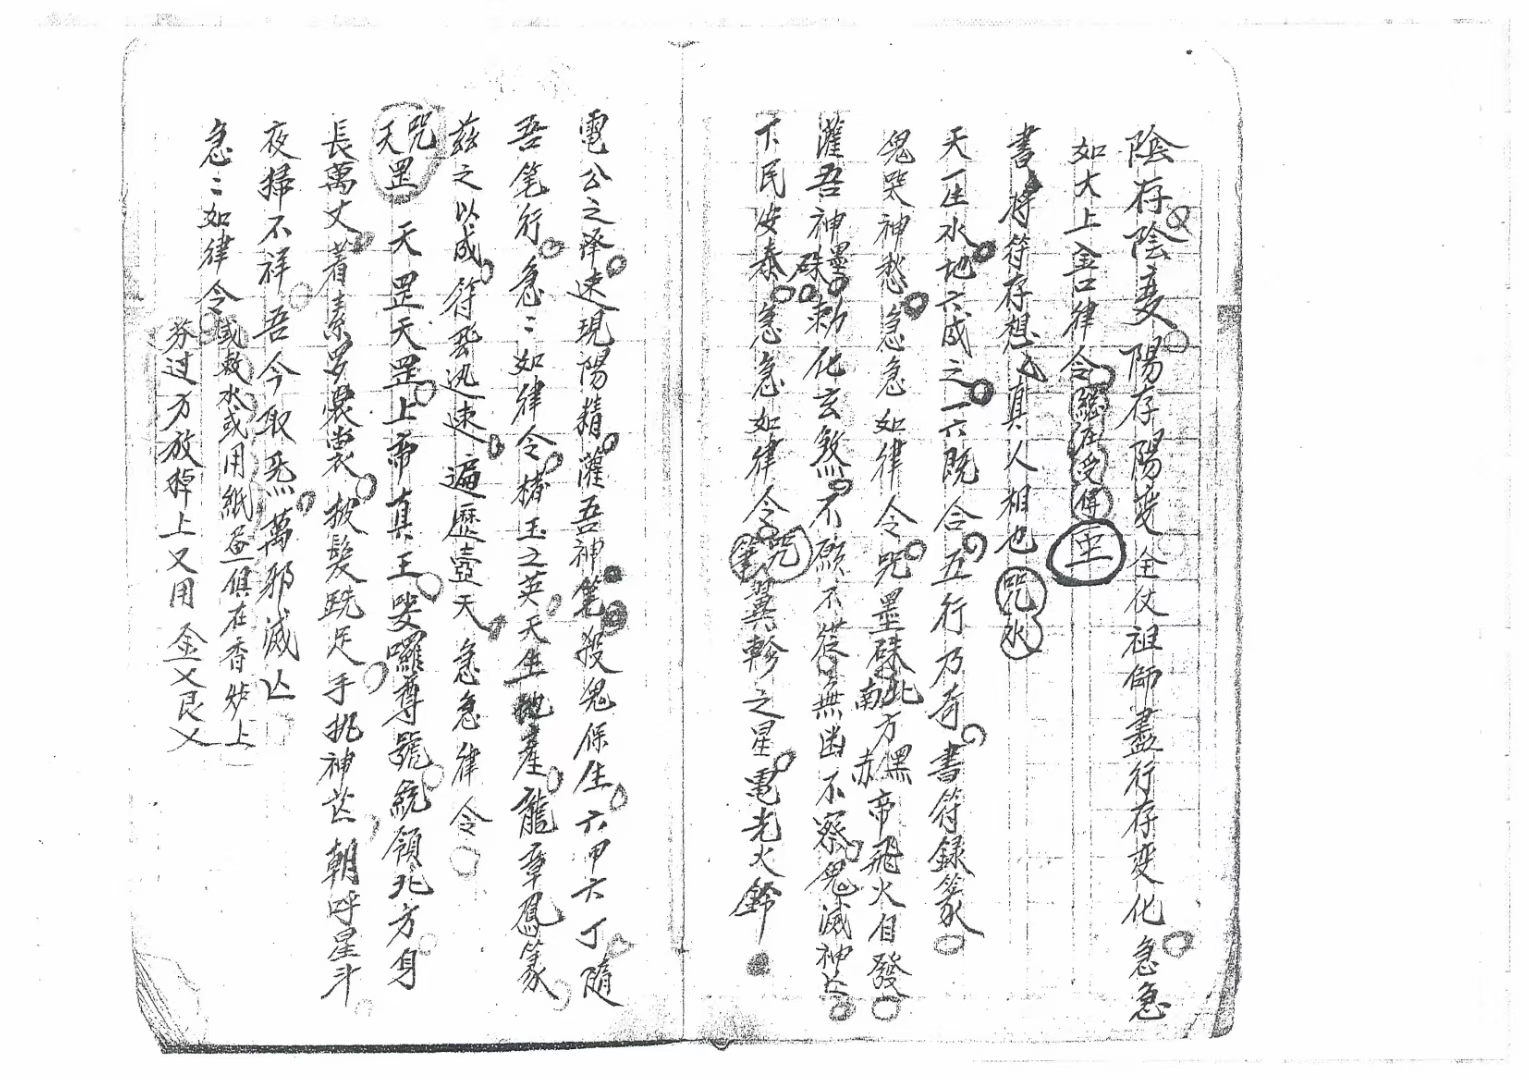 陰存陰变陽存陽变全仗祖師盡行存变化急急
如太上律令
書符符存想真人相也咒水
天一生水地六成之一六既合五行乃奇書符録篆
鬼哭神愁急急如律令咒墨硃北南方黑赤帝飛火自發
灌吾神墨硃勅化玄煞不願不從無凶不察鬼滅神亡
下民安泰急急如律令咒筆翼軫之星電光火鈴
電公之澤速現陽精灌吾神笔殺鬼保生六甲六丁隨
吾笔行急〻如律令楮玉之英天生地產龍章鳳篆
茲之以成符飛迅速遍歷壺天急急律令
咒天罡天罡天罡上帝真王娑囉尊號統領北方身
長萬丈著素罗裳披髮跣足手挑神芒朝呼星斗
夜掃不祥吾今取炁萬邪滅亡
急〻如律令或敕水或用紙俱在香炉上
过方放掉上又用金乂艮乂